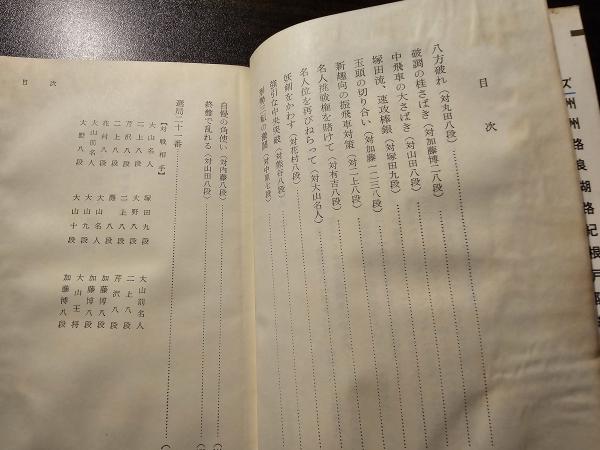 目次
八方破れ（対丸田八段）
破調の桂さばき（対加藤博二八段）
中飛車の大さばき（対山田八段）
塚田流、速攻棒銀（対塚田九段）
玉頭の切り合い（対加藤一二三八段）
新趣向の振飛車対策（対二上八段）
名人挑戦権を賭けて（対有吉八段）
名人位を再びねらって（対大山名人）
妖剣をかわす（対花村八段）
強引な中央突破（対熊谷八段）
（対中原七段）
自慢の角使い（対内藤八段）
終盤で乱れる（対山田八段）
選局二十一番
【対戦相手】
大山名人 塚田九段 大山前名人
二上八段 大野八段 二上八段
芹沢八段 二上八段 芹沢八段
二上八段 灘八段 加藤博八段
花村八段 大山名人 加藤博八段
大山前名人 大山九段 大山王将
大野八段 大山十段 加藤博八段
目次
ズ
州
州
路
良
湖
路
紀
根
戸